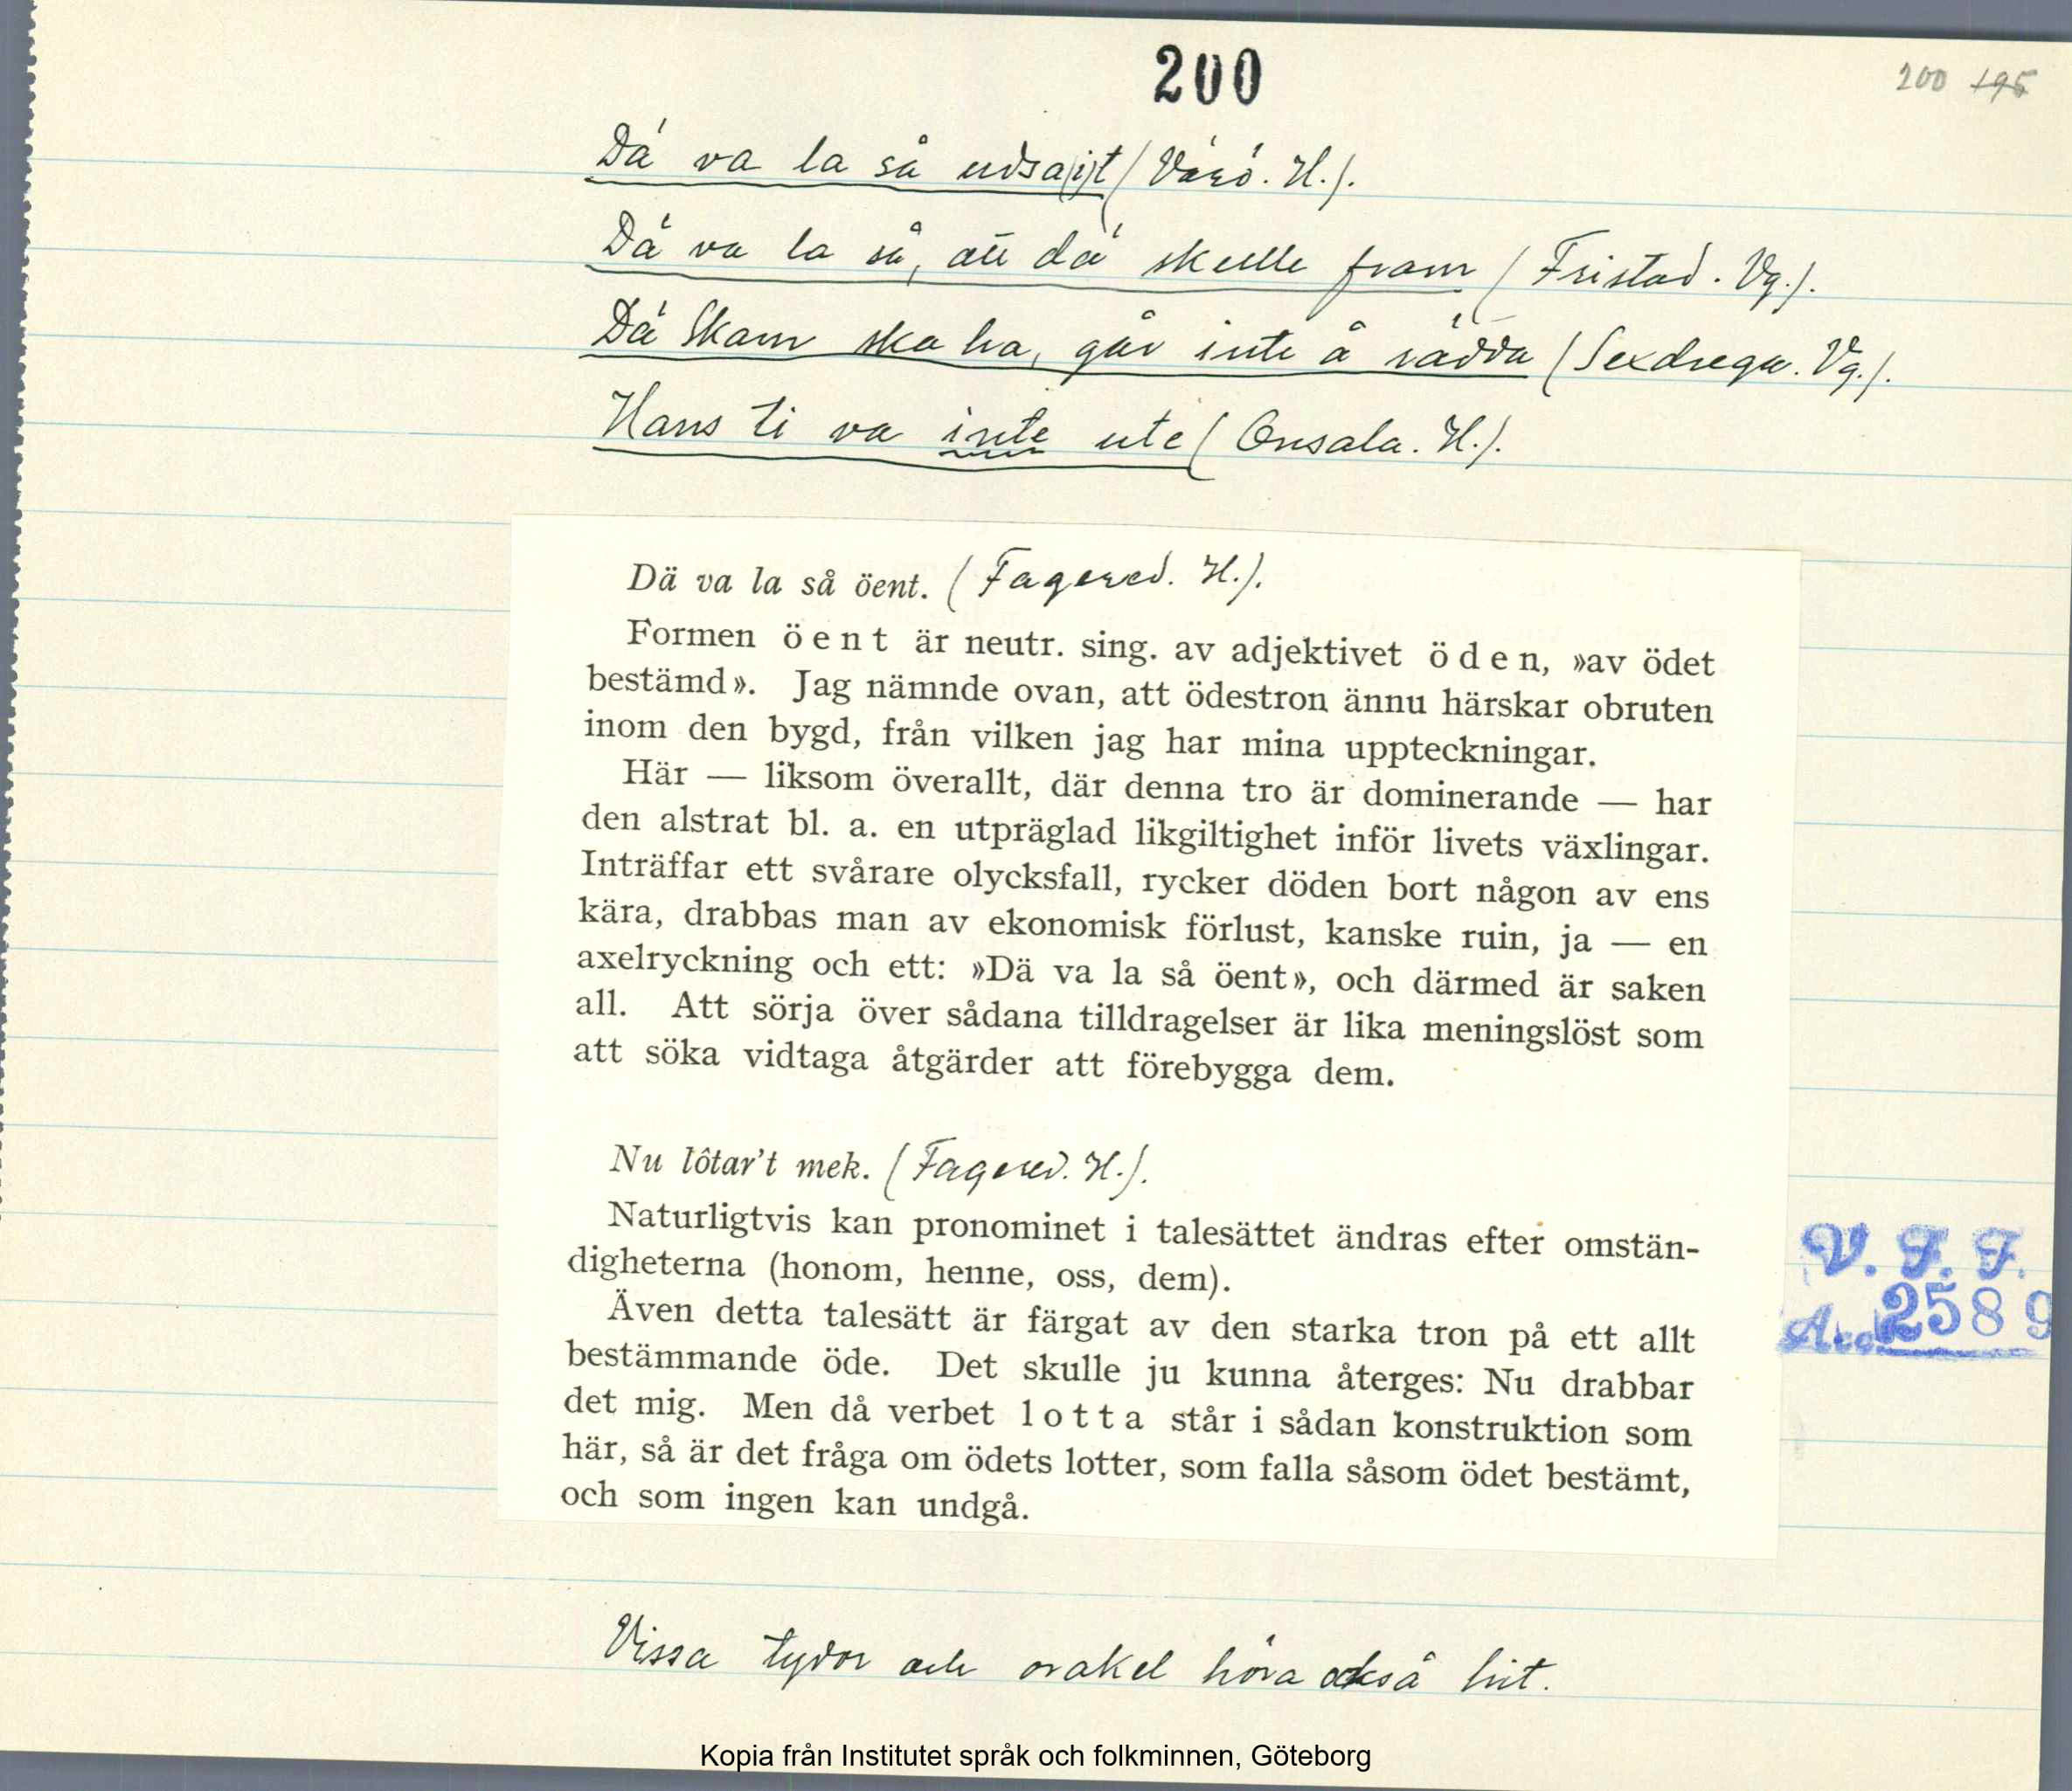 200
200 195
Dä va la så udsa(j)t (Värö. H.).
Dä va la så, att dä skulle fram (Fristad. Vg.).
Dä Skam ska ha, går inte å rädda (Sexdrega. Vg.).
Hans ti va inte ute (Onsala. H.).
Dä va la så öent. (Fagered. H.).
Formen öent är neutr. sing. av adjektivet öden, »av ödet
bestämd». Jag nämnde ovan, att ödestron ännu härskar obruten
inom den bygd, från vilken jag har mina uppteckningar.
Här — liksom överallt, där denna tro är dominerande — har
den alstrat bl. a. en utpräglad likgiltighet inför livets växlingar.
Inträffar ett svårare olycksfall, rycker döden bort någon av ens
kära, drabbas man av ekonomisk förlust, kanske ruin, ja — en
axelryckning och ett: »Dä va la så öent», och därmed är saken
all. Att sörja över sådana tilldragelser är lika meningslöst som
att söka vidtaga åtgärder att förebygga dem.
Nu lôtar't mek. (Fagered. H.).
Naturligtvis kan pronominet i talesättet ändras efter omstän-
digheterna (honom, henne, oss, dem).
Även detta talesätt är färgat av den starka tron på ett allt
bestämmande öde. Det skulle ju kunna återges: Nu drabbar
det mig. Men då verbet lotta står i sådan konstruktion som
här, så är det fråga om ödets lotter, som falla såsom ödet bestämt,
och som ingen kan undgå.
V. F. F.
Acc. 2589
Vissa tydor och orakel höra också hit.
Kopia från Institutet språk och folkminnen, Göteborg